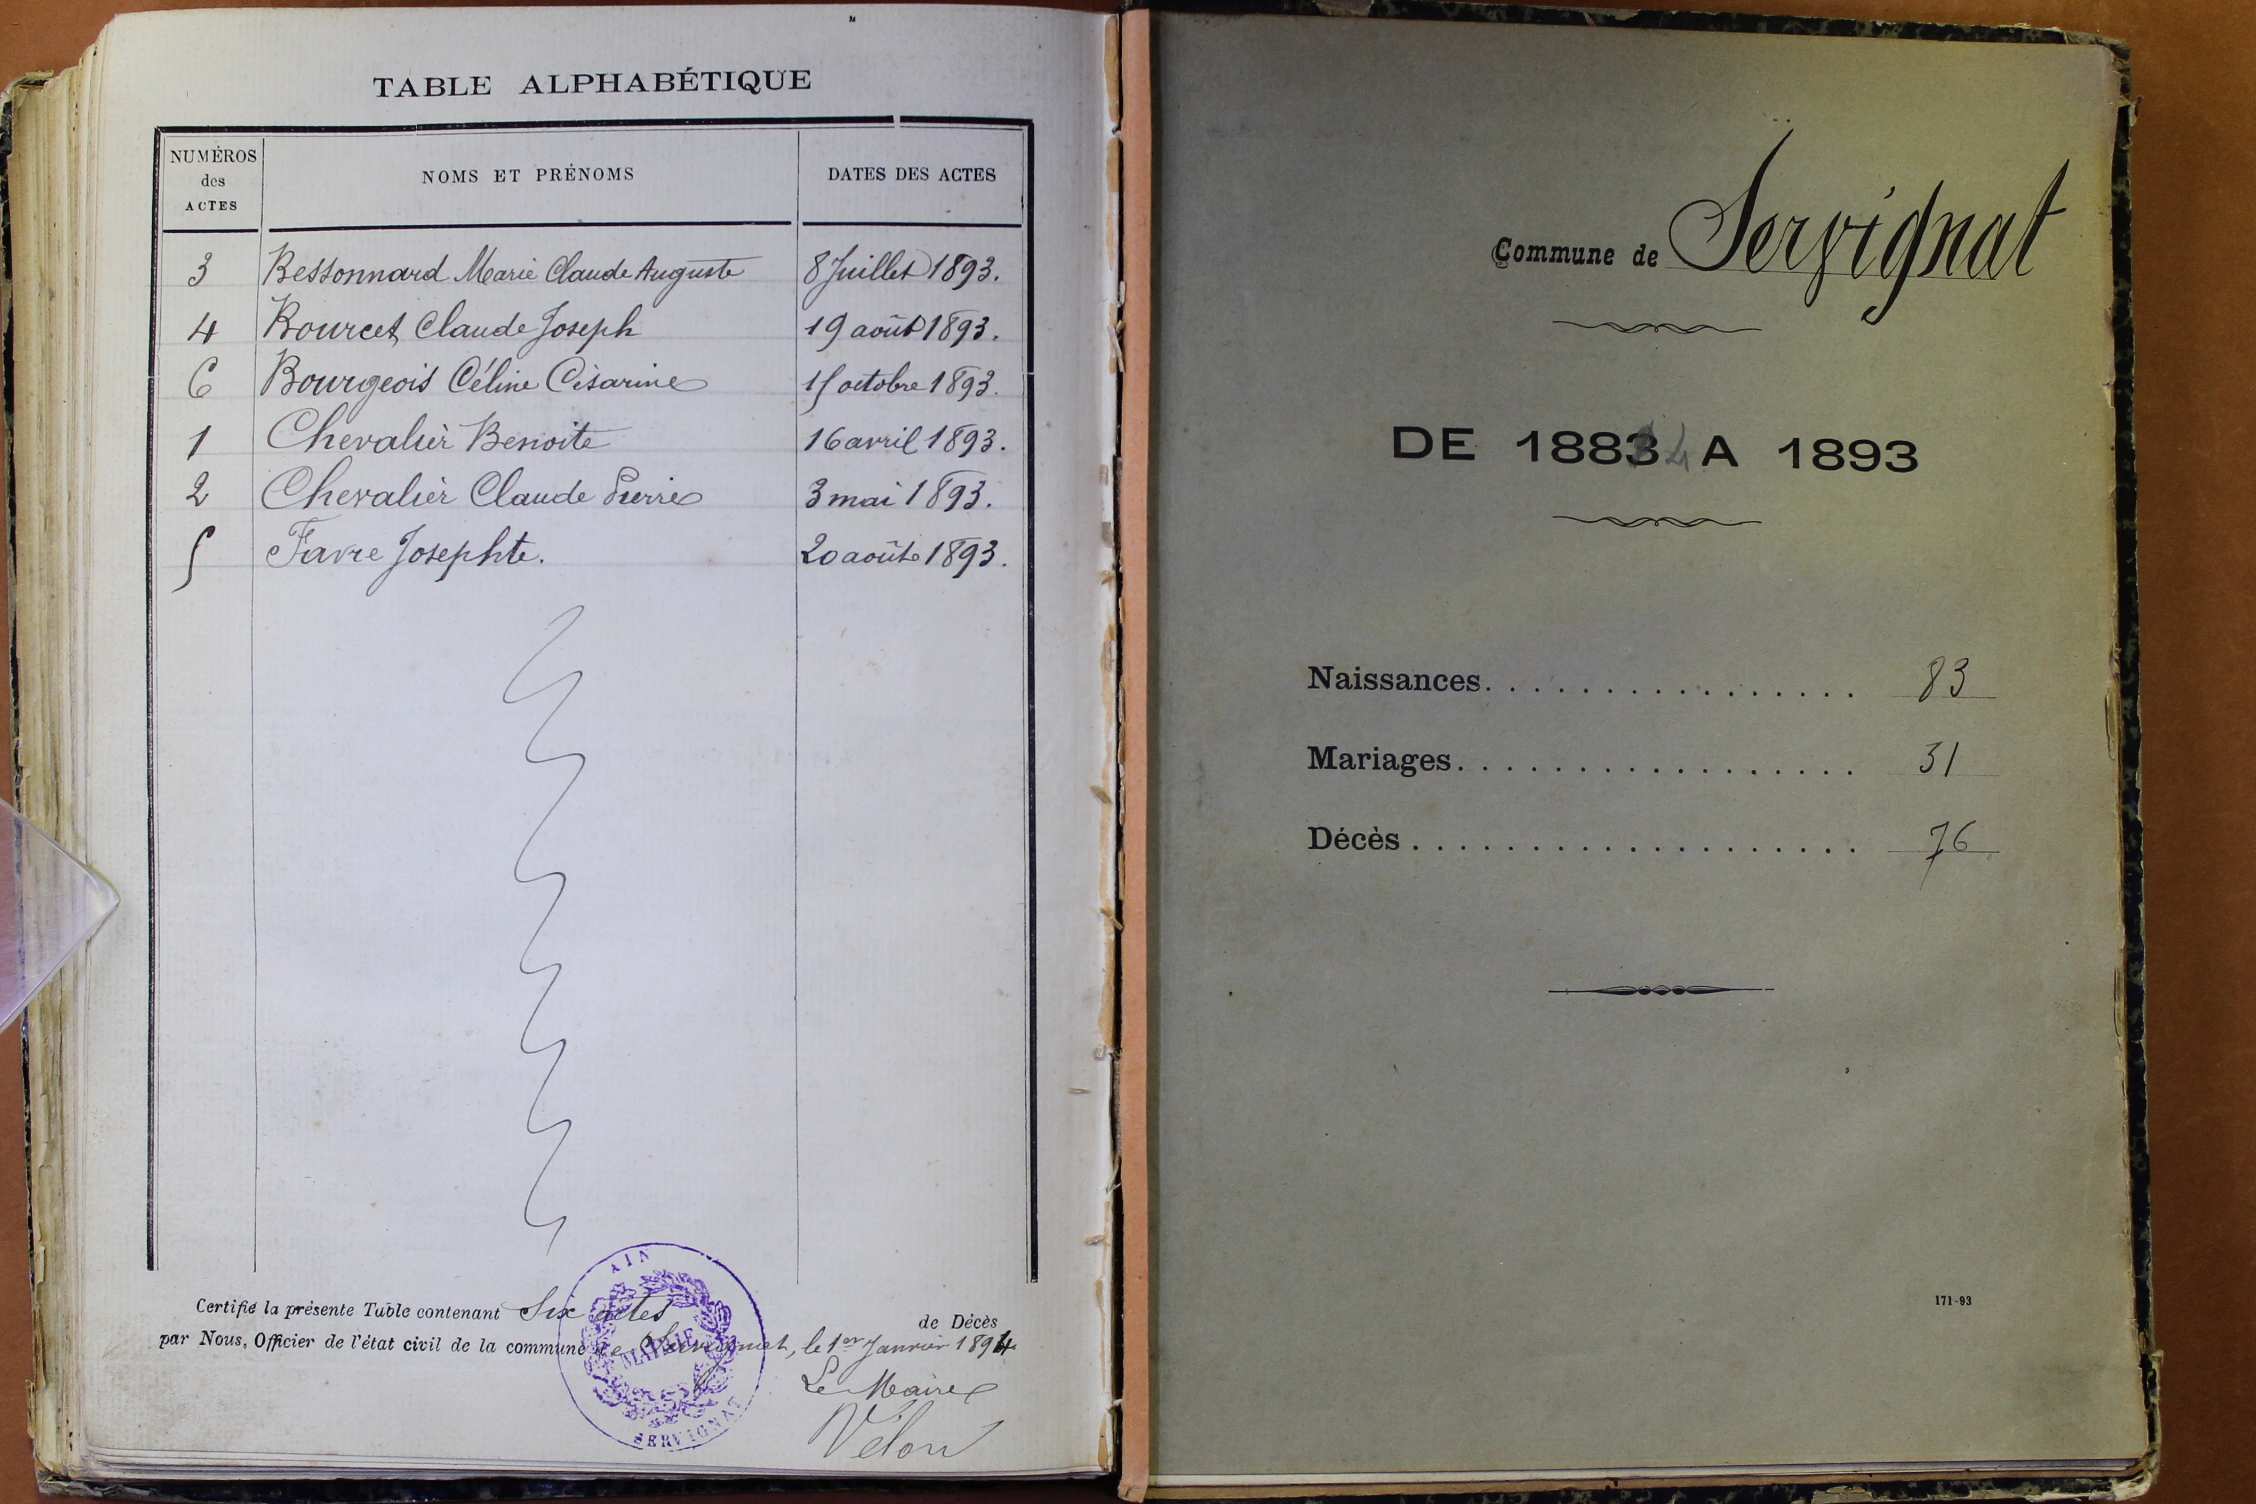 TABLE ALPHABÉTIQUE
NUMÉROS des ACTES NOMS ET PRÉNOMS DATES DES ACTES
3 Bessonnard Marie Claude Auguste 8 Juillet 1893.
4 Bourcet Claude Joseph 19 août 1893.
6 Bourgeois Céline Césarine 15 octobre 1893.
1 Chevalier Benoite 16 avril 1893.
2 Chevalier Claude Pierre 3 mai 1893.
5 Favre Josephte. 20 août 1893.
Certifié la présente Table contenant Six actes de Décès
par Nous, Officier de l'état civil de la commune de Servignat, le 1er Janvier 1894
Le Maire
Vélon
AIN
MAIRIE
SERVIGNAT
Commune de Servignat
DE 1883 4 A 1893
Naissances. . . . . . . . . . . . . . . . . 83
Mariages. . . . . . . . . . . . . . . . . . 31
Décès . . . . . . . . . . . . . . . . . . . . 76
171-93